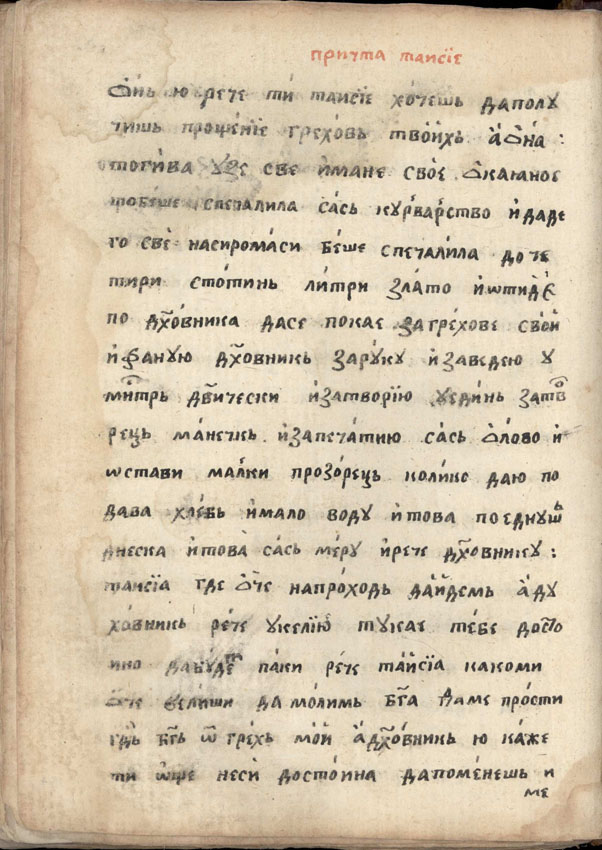 причта таисїе
ѻ҆нь ю рече ти таисїе хо́чешь да полу
чишь проще́нїе грехо́вь твои́хь а҆ ѻ҆на̀ :
тогива узе све и҆мане своє ѻ҆каꙗное
що беше спечалила са́сь ку́рварство и҆ даде
го све̂ на сирома́си бе́ше спеча́лила до че
тири сто́тинь ли́три зла́то и҆ ѡтиде́
по дх҃о́вника да се покае за грехове свои́
и҆ фану ю дх҃о́вникь за ру́ку и҆ заведе ю у
мн҃трь дв҃ически и҆ затвори ю у еди́нь затво
рець ма́нечкь и҆ запеча́ти ю са́сь ѻ҆лово и҆
ѡстави ма́лки прозо́рець колико да ю по
дава хле́бь и҆ мало воду и҆ това по еднушь
днеска и҆ това са́сь ме́ру и҆ рече дх҃о́внику :
таисїа где ѻ҆че на про́ходь да и҆де́мь а҆ ду
хо́вникь ре́че у келїю тукае те́бе досто
ино да буде́ть паки рече таи́сїа како ми
ѻ҆че велиши да молимь бг҃а да ме прости
гд҃ь бг҃ь ѿ грехь мои́ а҆ дх҃о́вникь ю ка́же
ти ѡще неси досто́ина да поменешь и
ме